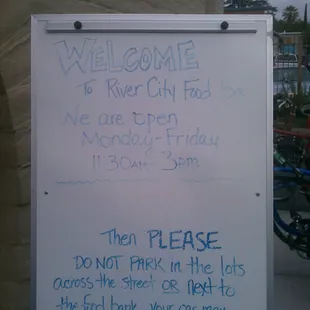 WELCOME
To River City Food
We are open
Monday-Friday
11:30am- 3pm
Then PLEASE
DO NOT PARK in the lots
across the street OR next to
the food bank, your car may